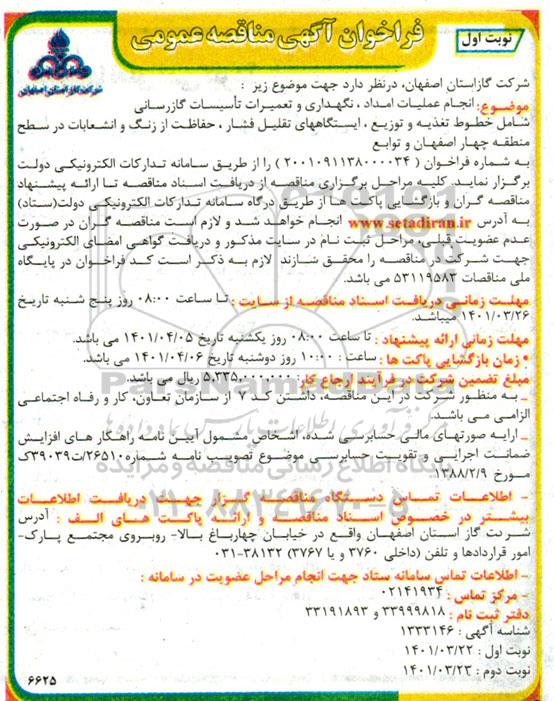 فراخوان آگهی مناقصه عمومی
نوبت اول
شرکت گاز استان اصفهان
شرکت گازاستان اصفهان، درنظر دارد جهت موضوع زیر :
موضوع: انجام عملیات امداد ، نگهداری و تعمیرات تأسیسات گازرسانی
شامل خطوط تغذیه و توزیع ، ایستگاههای تقلیل فشار ، حفاظت از زنگ و انشعابات در سطح
منطقه چهار اصفهان و توابع
به شماره فراخوان ( ۲۰۰۱۰۹۱۱۳۸۰۰۰۰۳۴ ) را از طریق سامانه تدارکات الکترونیکی دولت
برگزار نماید. کلیه مراحل برگزاری مناقصه از دریافت اسناد مناقصه تا ارائه پیشنهاد
مناقصه گران و بازگشایی پاکت ها از طریق درگاه سامانه تدارکات الکترونیکی دولت(ستاد)
به آدرس www.setadiran.ir انجام خواهد شد و لازم است مناقصه گران در صورت
عدم عضویت قبلی، مراحل ثبت نام در سایت مذکور و دریافت گواهی امضای الکترونیکی
جهت شرکت در مناقصه را محقق سازند لازم به ذکر است کد فراخوان در پایگاه
ملی مناقصات ۵۳۱۱۹۵۸۳ می باشد.
مهلت زمانی دریافت اسناد مناقصه از سایت : تا ساعت ۰۸:۰۰ روز پنج شنبه تاریخ
۱۴۰۱/۰۳/۲۶ میباشد.
مهلت زمانی ارائه پیشنهاد : تا ساعت ۰۸:۰۰ روز یکشنبه تاریخ ۱۴۰۱/۰۴/۰۵ می باشد.
• زمان بازگشایی پاکت ها : ساعت : ۱۰:۰۰ روز دوشنبه تاریخ ۱۴۰۱/۰۴/۰۶ می باشد.
مبلغ تضمین شرکت در فرآیند ارجاع کار: ریال می باشد.
_ به منظور شرکت در این مناقصه، داشتن کد ۷ از سازمان تعاون، کار و رفاه اجتماعی
الزامی می باشد.
_ ارایه صورتهای مالی حسابرسی شده، اشخاص مشمول آیین نامه راهکار های افزایش
ضمانت اجرایی و تقویت حسابرسی موضوع تصویب نامه شماره۲۶۵۱۰/ت۳۹۰۳۹ک
مورخ ۱۳۸۸/۲/۹.
- اطلاعات تماس دستگاه مناقصه گزار جهت دریافت اطلاعات
بیشتر در خصوص اسناد مناقصه و ارائه پاکت های الف : آدرس
شرکت گاز استان اصفهان واقع در خیابان چهارباغ بالا- روبروی مجتمع پارک-
امور قراردادها و تلفن (داخلی ۳۷۶۰ و یا ۳۷۶۷) ۳۸۱۳۲-۰۳۱
- اطلاعات تماس سامانه ستاد جهت انجام مراحل عضویت در سامانه :
- مرکز تماس : ۰۲۱۴۱۹۳۴
دفتر ثبت نام : ۳۳۹۹۹۸۱۸ و ۳۳۱۹۱۸۹۳
شناسه آگهی : ۱۳۳۳۱۴۶
نوبت اول : ۱۴۰۱/۰۳/۲۲
نوبت دوم : ۱۴۰۱/۰۳/۲۳
۶۶۲۵
ParsNamadData
۰۲۱-۸۸۳۴۹۶۷۰-۵